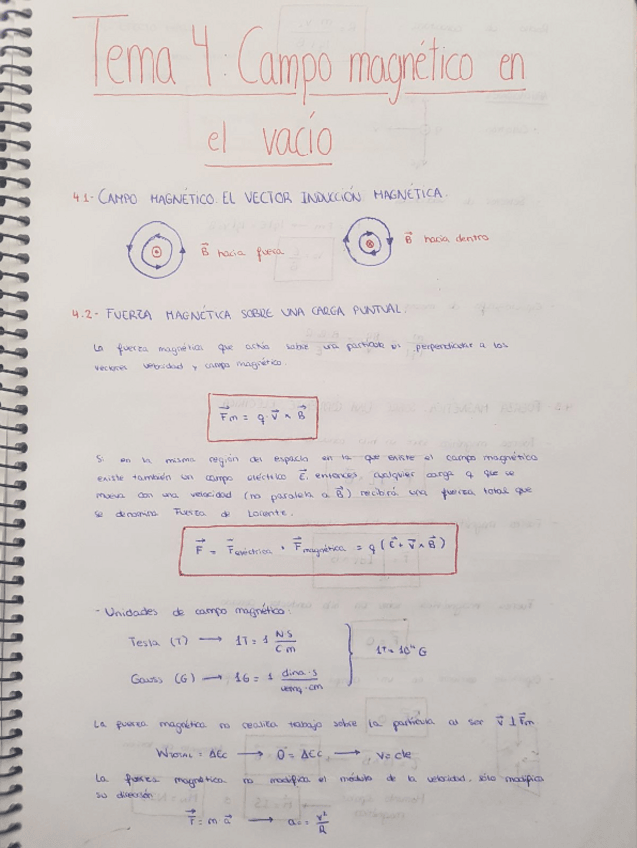 Tema 4: Campo magnético en
el vacío
4.1- CAMPO MAGNÉTICO. EL VECTOR INDUCCIÓN MAGNÉTICA.
B⃗ hacia fuera
B⃗ hacia dentro
4.2- FUERZA MAGNÉTICA SOBRE UNA CARGA PUNTUAL.
La fuerza magnética que actúa sobre una partícula es perpendicular a los
vectores velocidad y campo magnético.
F⃗m = q · V⃗ ∧ B⃗
Si en la misma región del espacio en la que existe el campo magnético
existe también un campo eléctrico E⃗, entonces, cualquier carga q que se
mueva con una velocidad (no paralela a B⃗) recibirá una fuerza total que
se denomina Fuerza de Lorentz.
F⃗ = F⃗eléctrica + F⃗magnética = q (E⃗ + V⃗ ∧ B⃗)
- Unidades de campo magnético:
Tesla (T) → 1T = 1 NS / C m
1T = 10⁴ G
Gauss (G) → 1G = 1 dina·s / ·cm
La fuerza magnética no realiza trabajo sobre la partícula al ser V⃗ ⊥ F⃗m
WTOTAL = ΔEc → 0 = ΔEc → v = cte
La fuerza magnética no modifica el módulo de la velocidad, sólo modifica
su dirección
F⃗ = m a⃗ → a = v² / R